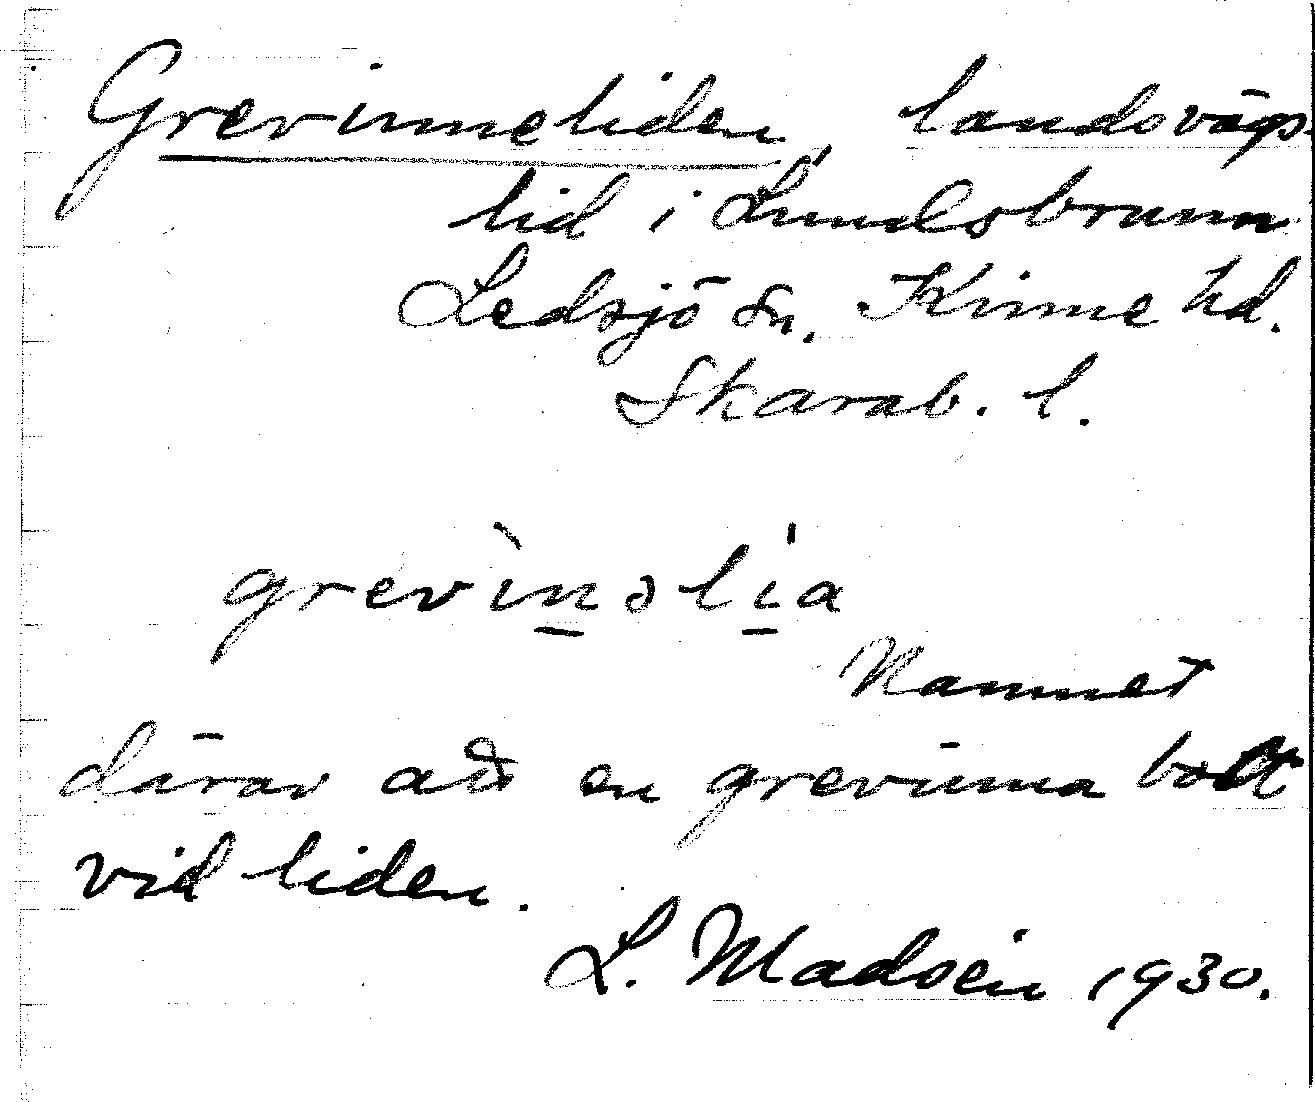 Grevinneliden, landsvägs-
lid i Lundsbrunn
Ledsjö sn. Kinne hd.
Skarab. l.
grevìnəlía
Namnet
därav att en grevinna bott
vid liden.
L. Madsén 1930.